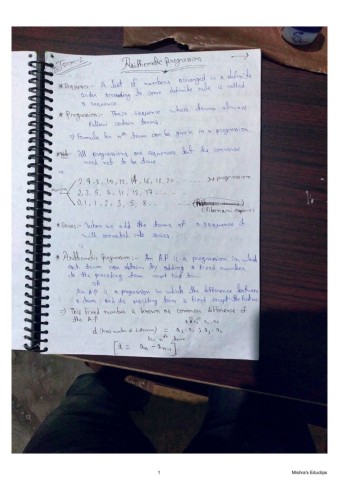 Arithmetic Progression
* Sequence:- A list of numbers arranged in a definite
order according to some definite rule is called
a sequence.
* Progression:- Those sequence whose terms always
follow certain terms.
⇒ Formula for nth term can be given in a progression
All progressions are sequences but the converse
need not to be true.
2, 4, 8, 10, 12, 14, 16, 18, 20 progression
2, 3, 5, 11, 13, 17
0, 1, 1, 2, 3, 5, 8 (Fibonacci sequence)
* Series:- When we add the terms of a sequence it
will converted into series.
* Arithmetic Progression:- An A.P is a progression in which
each term can obtain by adding a fixed number
to the preceding term except first term.
OR
An A.P is a progression in which the difference between
a term and its preceding term is fixed except the first term
⇒ This fixed number is known as common difference of
the A.P
d = a₂ - a₁
nth term
[d = aₙ - aₙ₋₁]
1
Mishra's Edudips